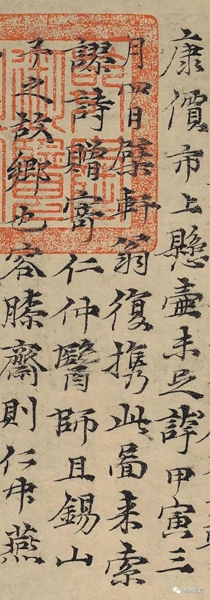 康價市上懸壺未足誇甲寅三
月四日檗軒翁復携此啚来索
謬詩贈寄仁仲醫師且錫山
予之故鄉也容膝齋則仁仲燕